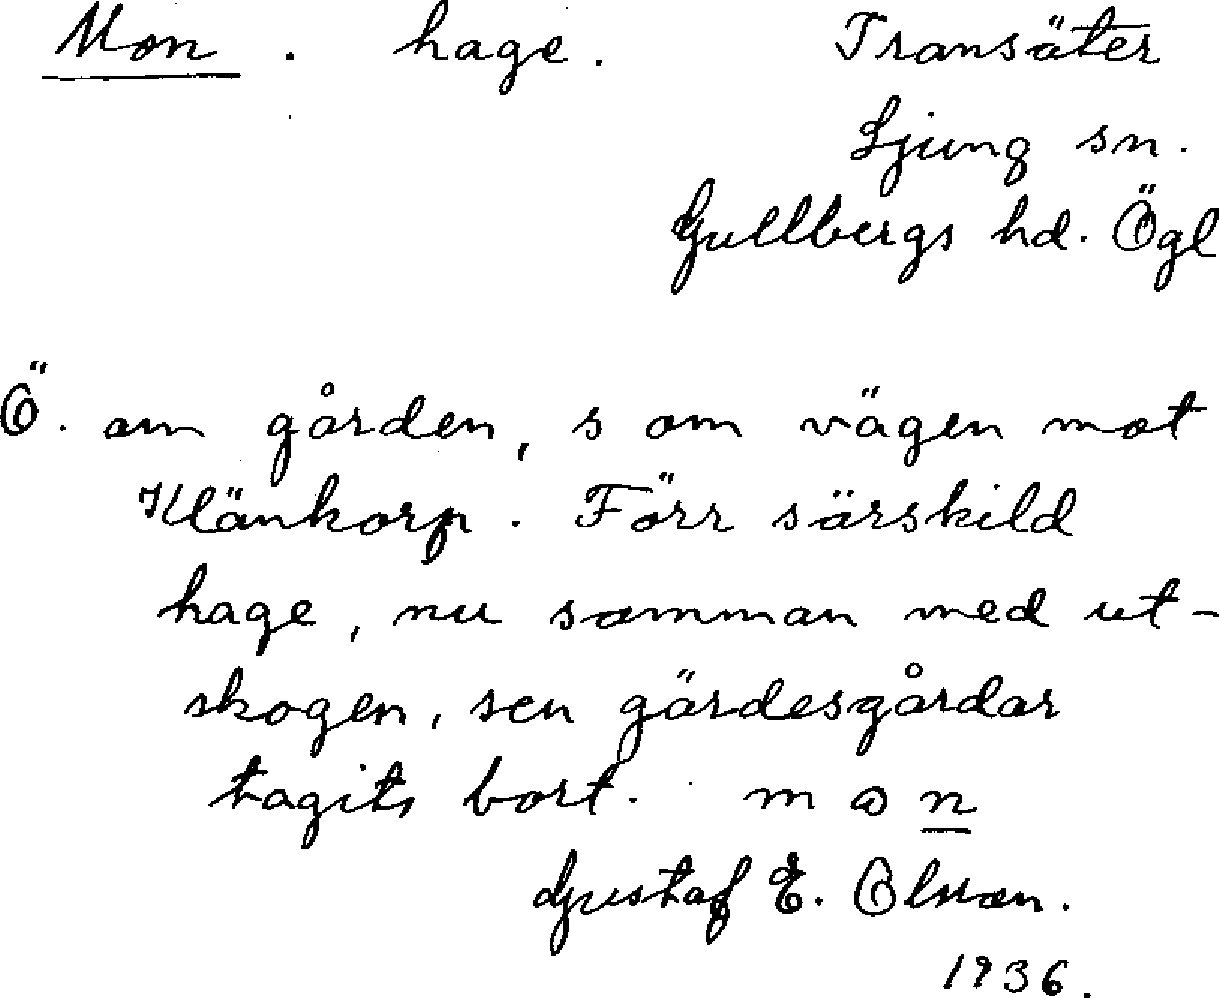 Mon. hage. Transäter
Ljung sn.
Gullbergs hd. Ögl
Ö. om gården, s om vägen mot
Klänkorp. Förr särskild
hage, nu samman med ut-
skogen, sen gärdesgårdar
tagits bort. m o n
Gustaf E. Olsson.
1936.